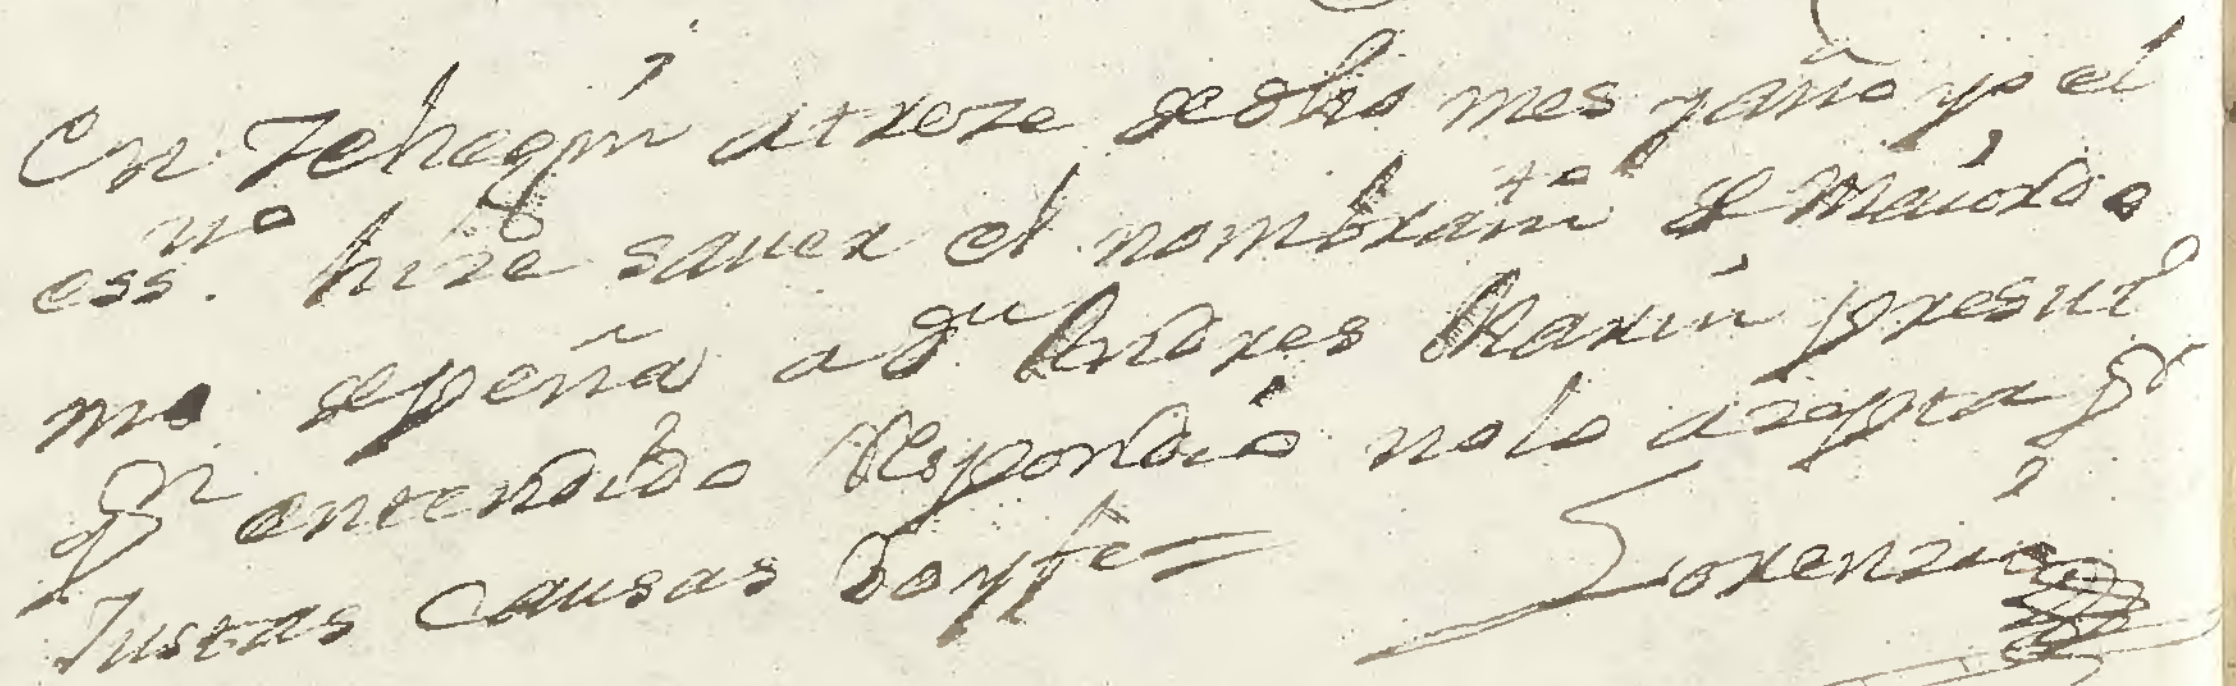 En Zehegin a treze de dho mes y año yo el
essno. hize sauer el nombramto de Maiordo
mo de peña a dn Andres Marin presui
por entendido Respondio no lo azepta pr
Justas Causas Doyfe = Lorenzio